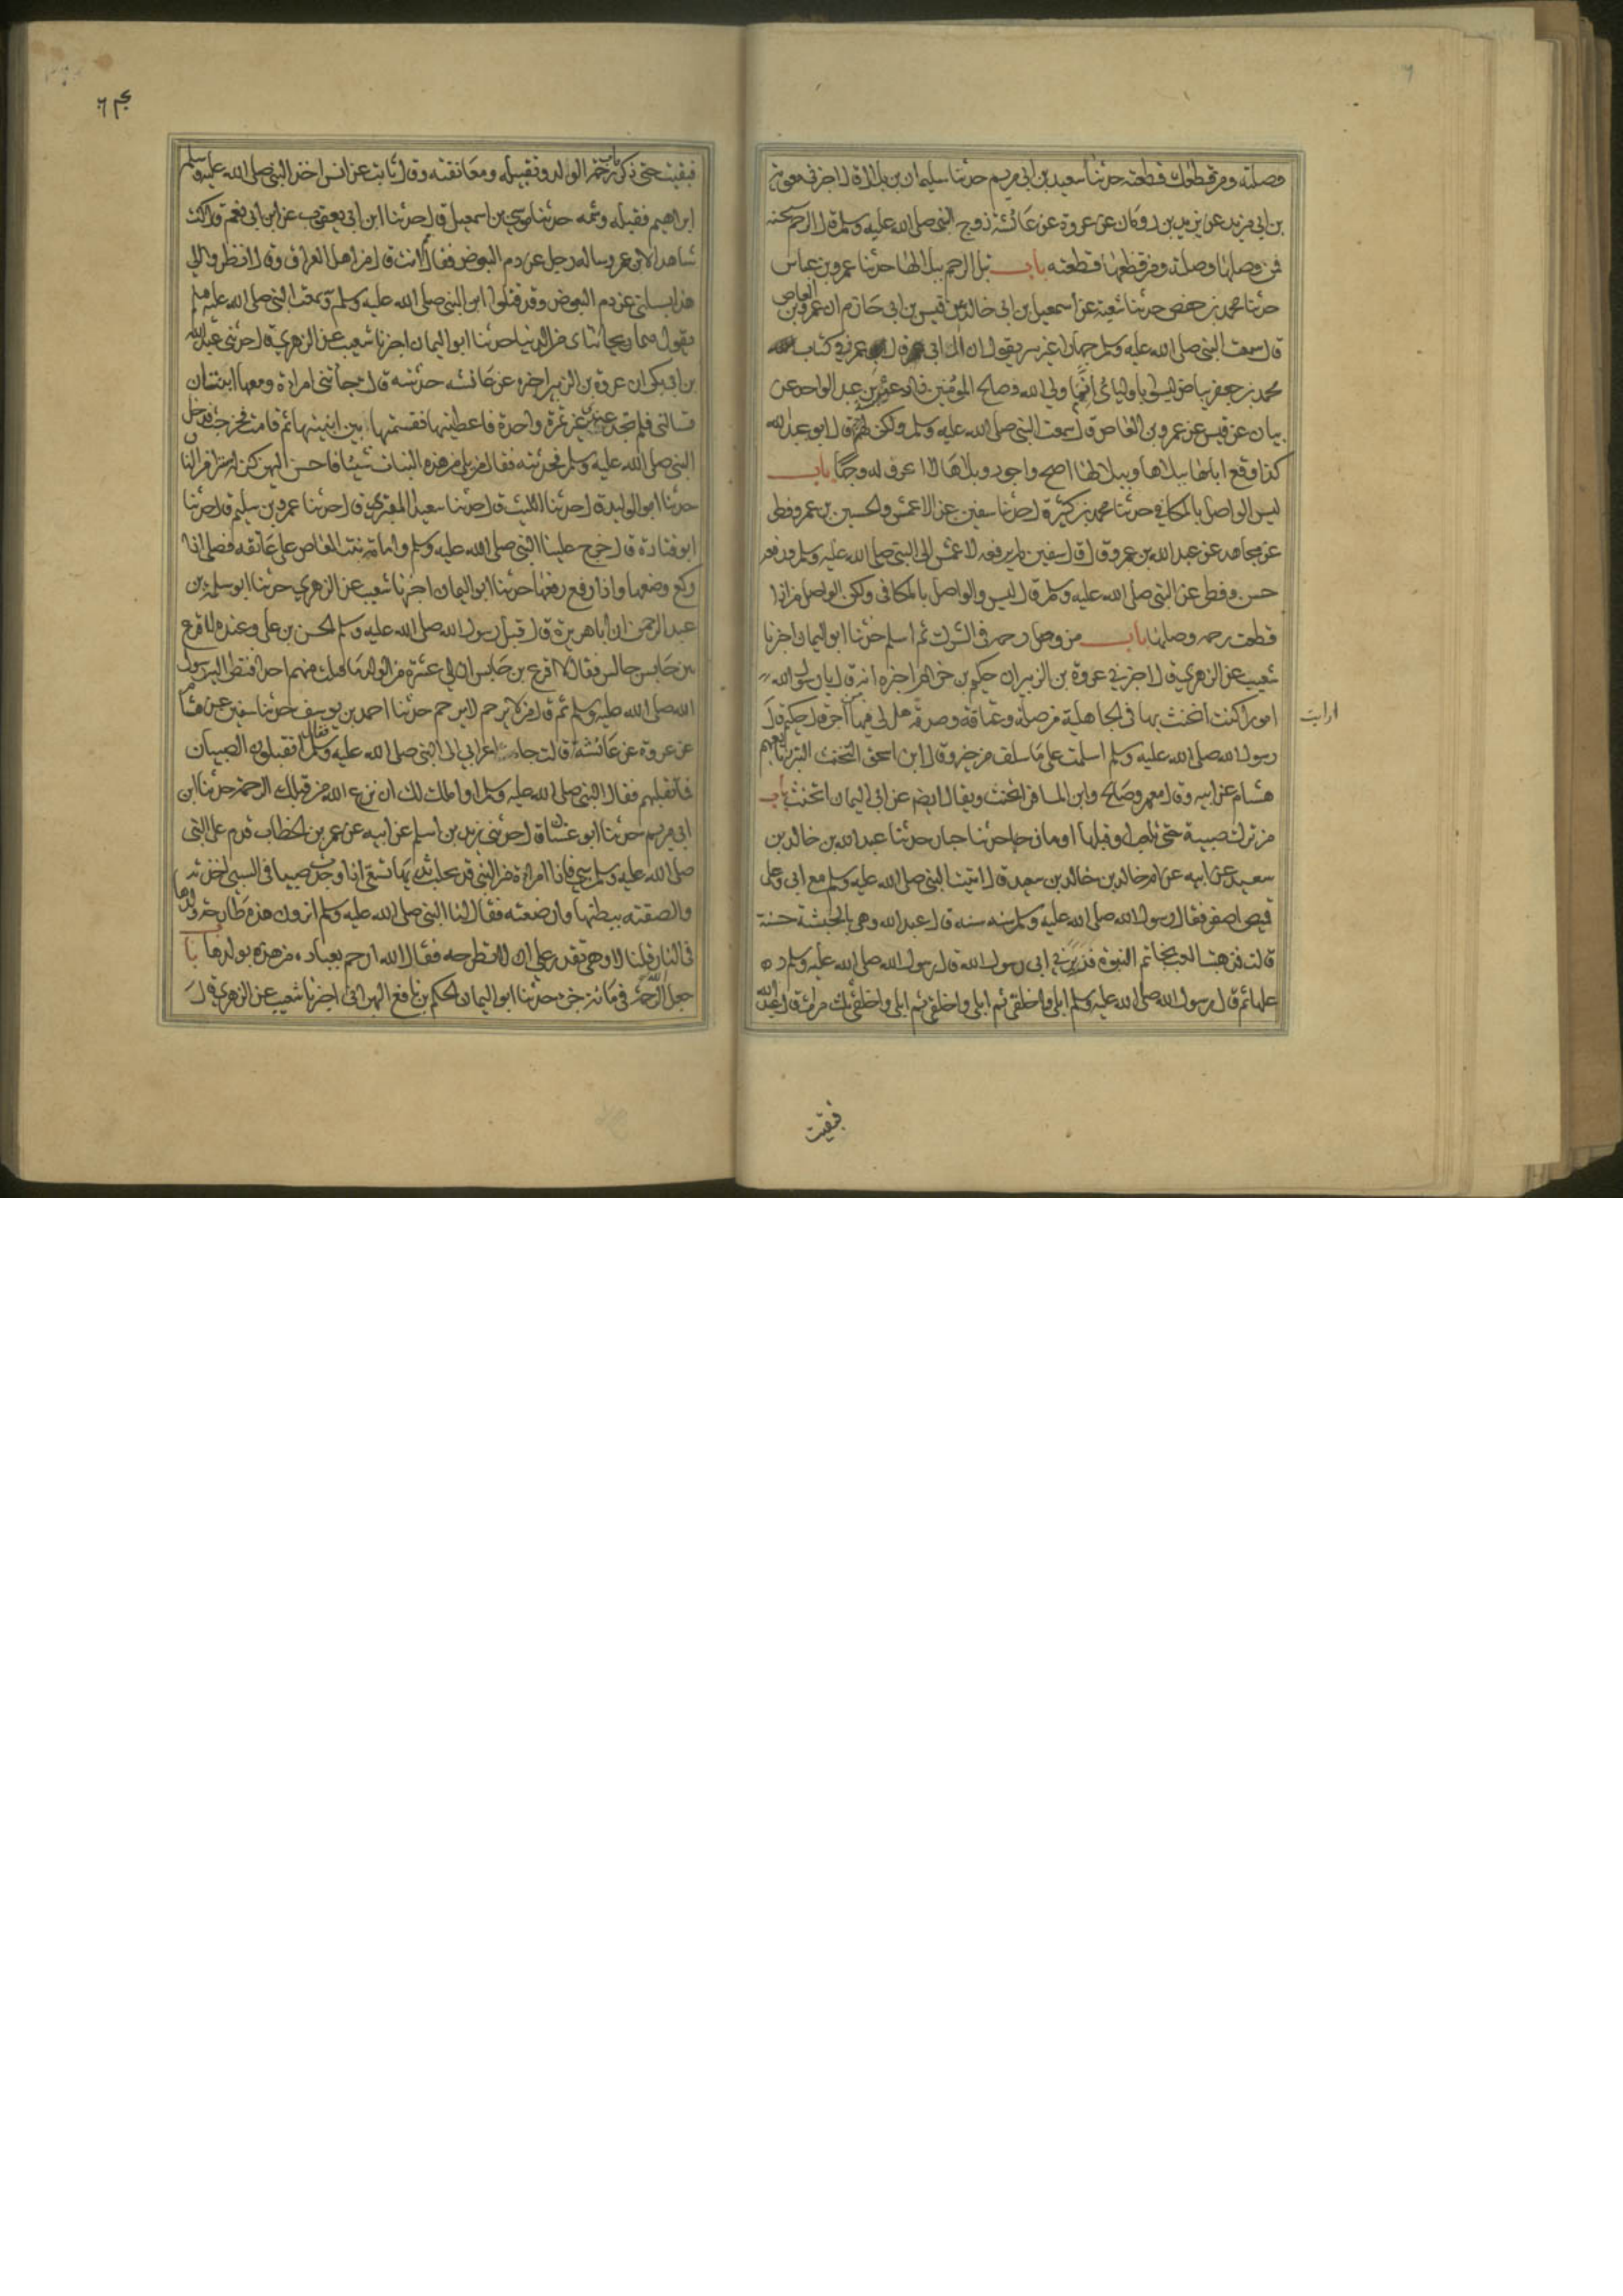 وصلته ومن قطعك قطعته حدثنا سعيد بن ابي مريم حدثنا سليمان بن بلال قال اخبرني معوية
بن ابي مزرد عن يزيد بن رومان عن عروة عن عائشة زوج النبي صلى الله عليه وسلم قال الرحم شجنة
فمن وصلها وصلته ومن قطعها قطعته باب تبل الرحم ببلالها حدثنا عمرو بن عباس
حدثنا محمد بن جعفر حدثنا شعبة عن اسمعيل بن ابي خالد عن قيس بن ابي حازم ان عمرو بن العاص
قال سمعت النبي صلى الله عليه وسلم جهارا غير سر يقول ان ال ابي قال عمرو في كتاب
محمد بن جعفر بياض ليسوا باوليائي انما وليي الله وصالح المؤمنين زاد عنبسة بن عبد الواحد عن
بيان عن قيس عن عمرو بن العاص قال سمعت النبي صلى الله عليه وسلم ولكن لهم قال ابو عبد الله
كذا وقع ابلها ببلاها وببلالها اصح واجود وببلاها لا اعرف له وجها باب
ليس الواصل بالمكافي حدثنا محمد بن كثير قال حدثنا سفين عن الاعمش والحسين بن عمرو وفطر
عن مجاهد عن عبد الله بن عمرو قال قال سفين لم يرفعه الاعمش الى النبي صلى الله عليه وسلم ورفعه
حسن وفطر عن النبي صلى الله عليه وسلم قال ليس والواصل بالمكافي ولكن الواصل من اذا
قطعت رحمه وصلها باب من وصل رحمه في الشرك ثم اسلم حدثنا ابو اليمان اخبرنا
شعيب عن الزهري قال اخبرني عروة بن الزبير ان حكيم بن حزام اخبره انه قال يا رسول الله
ارايت
امورا كنت اتحنث بها في الجاهلية من صلة وعتاقة وصدقة هل لي فيها اجر قال حكيم قال
رسول الله صلى الله عليه وسلم اسلمت على ما سلف من خير وقال ابن اسحق التحنث التبرر تابعهم
هشام عن ابيه وقال معمر وصالح وابن المسافر اتحنث ويقال ايضا عن ابي اليمان اتحنث باب
من ترك صبية حتى تلعب او قبلها او مازحها حدثنا حبان حدثنا عبد الله بن خالد بن
سعيد عن ابيه عن ام خالد بن خالد بن سعيد قال اتيت النبي صلى الله عليه وسلم مع ابي وعلي
قميص اصفر فقال رسول الله صلى الله عليه وسلم سنه سنه قال عبد الله وهي بالحبشة حسنة
قالت فذهبت العب بخاتم النبوة فزبرني ابي رسول الله قال رسول الله صلى الله عليه وسلم ده
عها ثم قال رسول الله صلى الله عليه وسلم ابلي واخلقي ثم ابلي واخلقي ثم ابلي واخلقي ثلث مرات قال عبد الله
فبقيت
فبقيت حتى ذكر باب رحمة الولد وتقبيله ومعانقته وقال ثابت عن انس اخذ النبي صلى الله عليه وسلم
ابراهيم فقبله وشمه حدثنا موسى بن اسمعيل قال حدثنا ابن ابي يعقوب عن ابن ابي نعم قال كنت
شاهدا لابن عمر وساله رجل عن دم البعوض فقال ممن انت قال من اهل العراق وقال انظروا الى
هذا يسالني عن دم البعوض وقد قتلوا ابن النبي صلى الله عليه وسلم وسمعت النبي صلى الله عليه وسلم
يقول هما ريحانتاي من الدنيا حدثنا ابو اليمان اخبرنا شعيب عن الزهري قال حدثني عبد الله
بن ابي بكر ان عروة بن الزبير اخبره عن عائشة حدثته قالت جاءتني امراة ومعها ابنتان
تسالني فلم تجد عندي غير تمرة واحدة فاعطيتها فقسمتها بين ابنتيها ثم قامت فخرجت فدخل
النبي صلى الله عليه وسلم فحدثته فقال من يلي من هذه البنات شيئا فاحسن اليهن كن له سترا من النار
حدثنا ابو الوليد قال حدثنا الليث قال حدثنا سعيد المقبري قال حدثنا عمرو بن سليم قال حدثنا
ابو قتادة قال خرج علينا النبي صلى الله عليه وسلم وامامة بنت العاص على عاتقه فصلى فاذا
ركع وضعها واذا رفع رفعها حدثنا ابو اليمان اخبرنا شعيب عن الزهري حدثنا ابو سلمة بن
عبد الرحمن ان ابا هريرة قال قبل رسول الله صلى الله عليه وسلم الحسن بن علي وعنده الاقرع
بن حابس جالس فقال الاقرع بن حابس ان لي عشرة من الولد ما قبلت منهم احدا فنظر اليه رسول
الله صلى الله عليه وسلم ثم قال من لا يرحم لا يرحم حدثنا احمد بن يوسف حدثنا سفين عن هشام
عن عروة عن عائشة قالت جاء اعرابي الى النبي صلى الله عليه وسلم فقال اتقبلون الصبيان
فما نقبلهم فقال النبي صلى الله عليه وسلم او املك لك ان نزع الله من قبلك الرحمة حدثنا ابن
ابي مريم حدثنا ابو غسان قال حدثني زيد بن اسلم عن ابيه عن عمر بن الخطاب قدم على النبي
صلى الله عليه وسلم سبي فاذا امراة من السبي قد تحلب ثديها تسقي اذا وجدت صبيا في السبي اخذته
والصقته ببطنها وارضعته فقال لنا النبي صلى الله عليه وسلم اترون هذه طارحة ولدها
في النار قلنا لا وهي تقدر على ان لا تطرحه فقال الله ارحم بعباده من هذه بولدها باب
جعل الله الرحمة في مائة جزء حدثنا ابو اليمان الحكم بن نافع البهراني اخبرنا شعيب عن الزهري قال